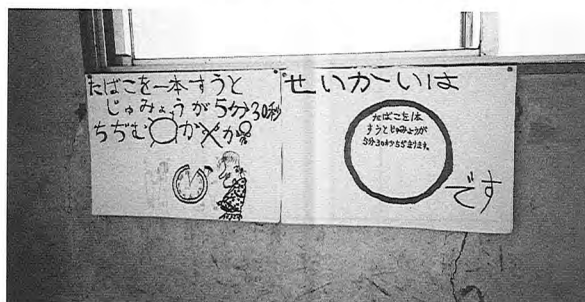 たばこを一本すうと
じゅみょうが5分30秒
ちぢむ○か×か?
せいかいは
たばこを1本
すうとじゅみょうが
5分30秒ちぢまります。
です